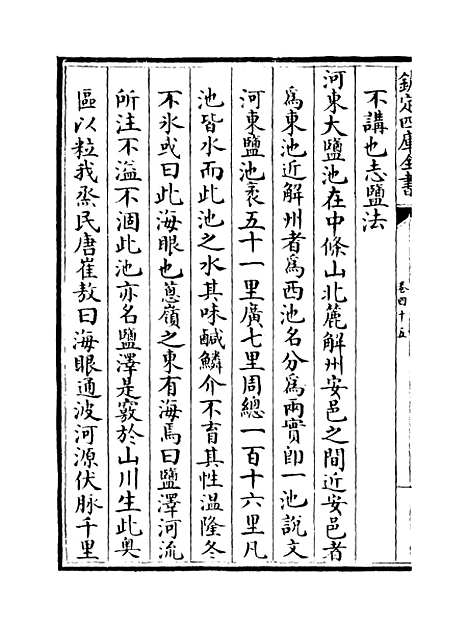 欽定四庫全書
卷四十五
不講也志鹽法
河東大鹽池在中條山北麓解州安邑之間近安邑者
爲東池近解州者爲西池名分爲兩實即一池說文
河東鹽池袤五十一里廣七里周總一百十六里凡
池皆水而此池之水其味鹹鱗介不育其性溫隆冬
不氷或曰此海眼也蔥嶺之東有海焉曰鹽澤河流
所注不溢不涸此池亦名鹽澤是竅於山川生此奥
區以粒我烝民唐崔敖曰海眼通波河源伏脉千里